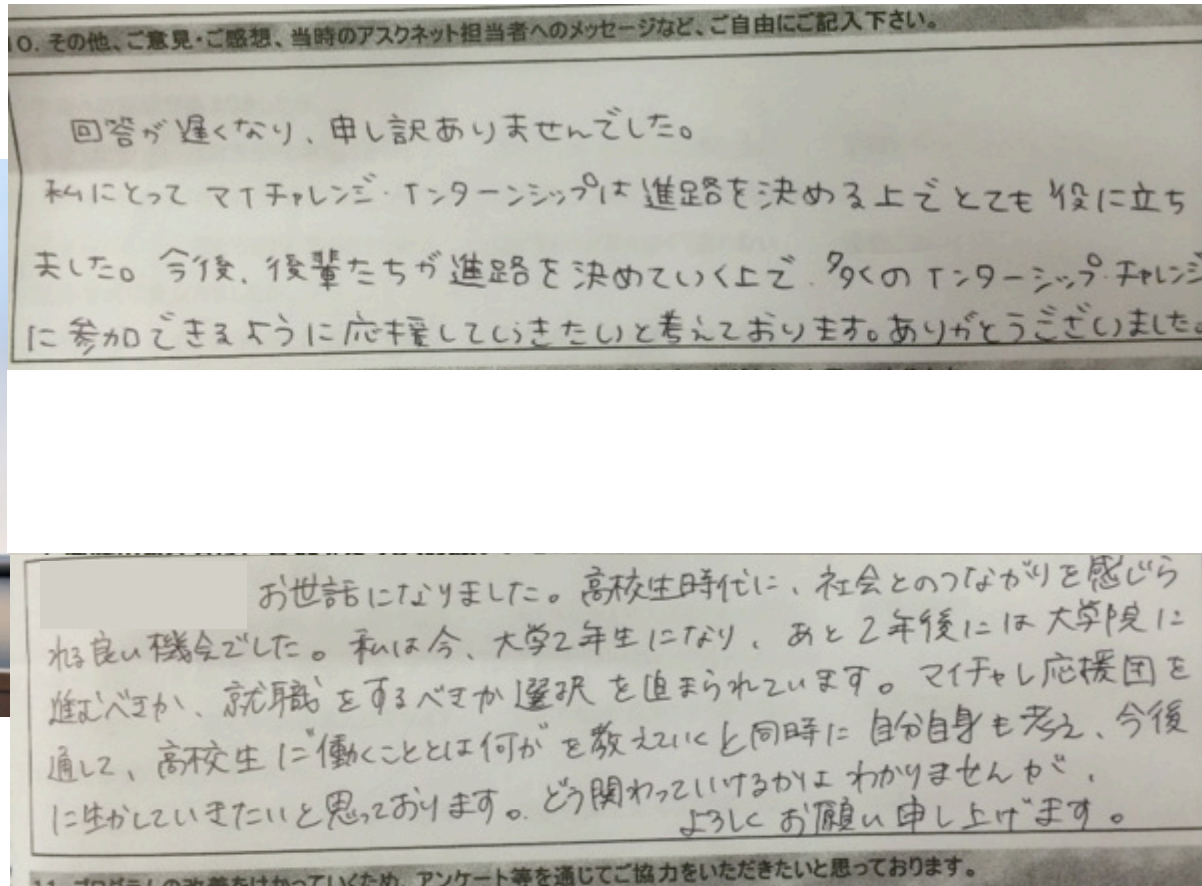 10. その他、ご意見・ご感想、当時のアスクネット担当者へのメッセージなど、ご自由にご記入下さい。
回答が遅くなり、申し訳ありませんでした。
私にとって マイチャレンジ・インターンシップは進路を決める上でとても役に立ち
ました。今後、後輩たちが進路を決めていく上で、多くのインターンシップ・チャレンジ
に参加できるように応援していきたいと考えております。ありがとうございました。
お世話になりました。高校生時代に、社会とのつながりを感じら
れる良い機会でした。私は今、大学2年生になり、あと2年後には大学院に
進むべきか、就職をするべきか選択を迫られています。マイチャレ応援団を
通して、高校生に"働くこととは何か"を教えていくと同時に自分自身も考え、今後
に生かしていきたいと思っております。どう関わっていけるかはわかりませんが、
よろしくお願い申し上げます。
11. プログラムの改善をはかっていくため、アンケート等を通じてご協力をいただきたいと思っております。